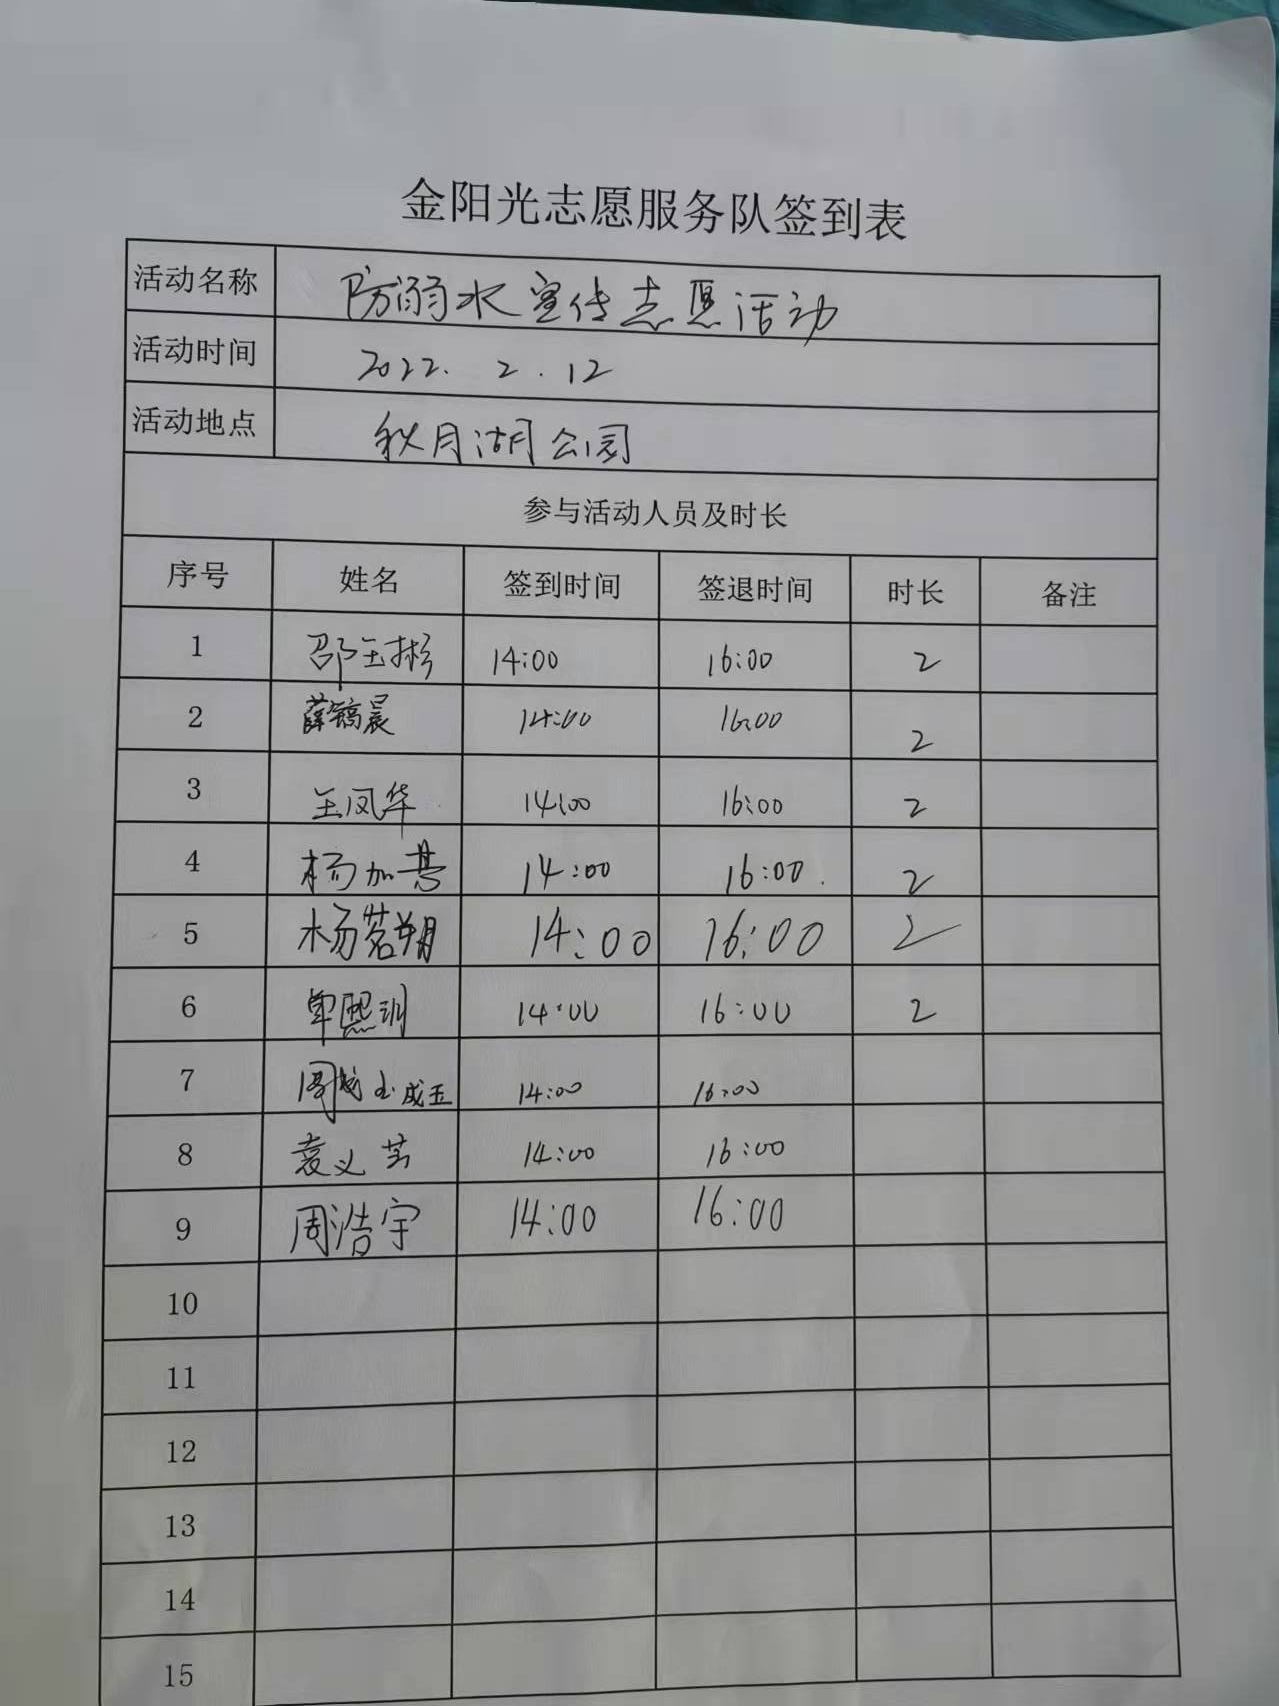 金阳光志愿服务队签到表
活动名称 防溺水宣传志愿活动
活动时间 2022. 2. 12
活动地点 秋月湖公园
参与活动人员及时长
序号 姓名 签到时间 签退时间 时长 备注
1 邵玉彬 14:00 16:00 2
2 薛镐晨 14:00 16:00 2
3 王凤华 14:00 16:00 2
4 杨加慧 14:00 16:00 2
5 杨茗朔 14:00 16:00 2
6 单熙玥 14:00 16:00 2
7 周 成玉 14:00 16:00
8 袁义芳 14:00 16:00
9 周浩宇 14:00 16:00
10
11
12
13
14
15